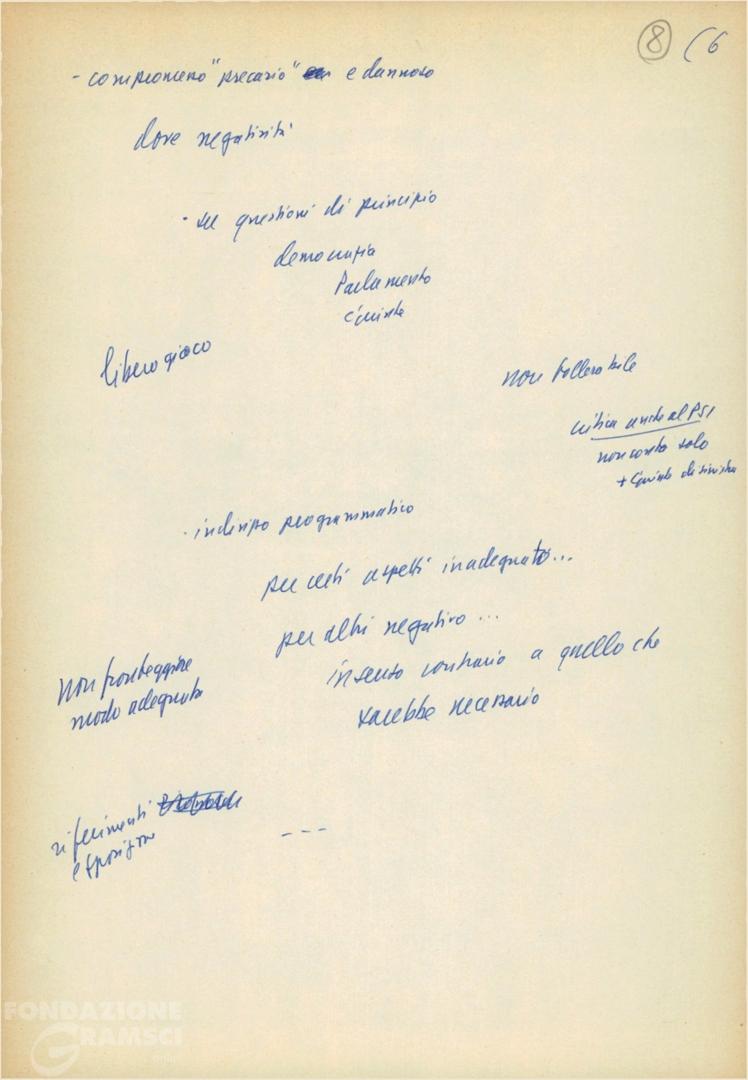 8 (6
- compromesso "precario" e dannoso
dove negatività
· su questioni di principio
democrazia
Parlamento
Giunte
libero gioco
non tollerabile
critica anche al PSI
non conta solo
+ Giunte di sinistra
· indirizzo programmatico
per certi aspetti inadeguato...
per altri negativo...
in senso contrario a quello che
sarebbe necessario
Non fronteggiare
modo adeguato
riferimenti
esposizione
---
FONDAZIONE
GRAMSCI